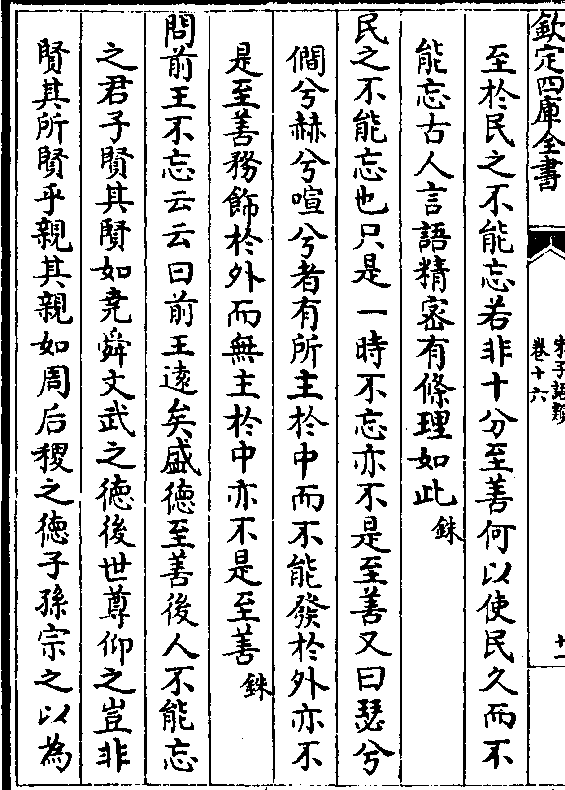 欽定四庫全書
朱子語類
卷十六
十一
至於民之不能忘若非十分至善何以使民久而不
能忘古人言語精密有條理如此銖
民之不能忘也只是一時不忘亦不是至善又曰瑟兮
僩兮赫兮喧兮者有所主於中而不能發於外亦不
是至善務飾於外而無主於中亦不是至善銖
問前王不忘云云曰前王逺矣盛徳至善後人不能忘
之君子賢其賢如堯舜文武之徳後世尊仰之豈非
賢其所賢乎親其親如周后稷之徳子孫宗之以為